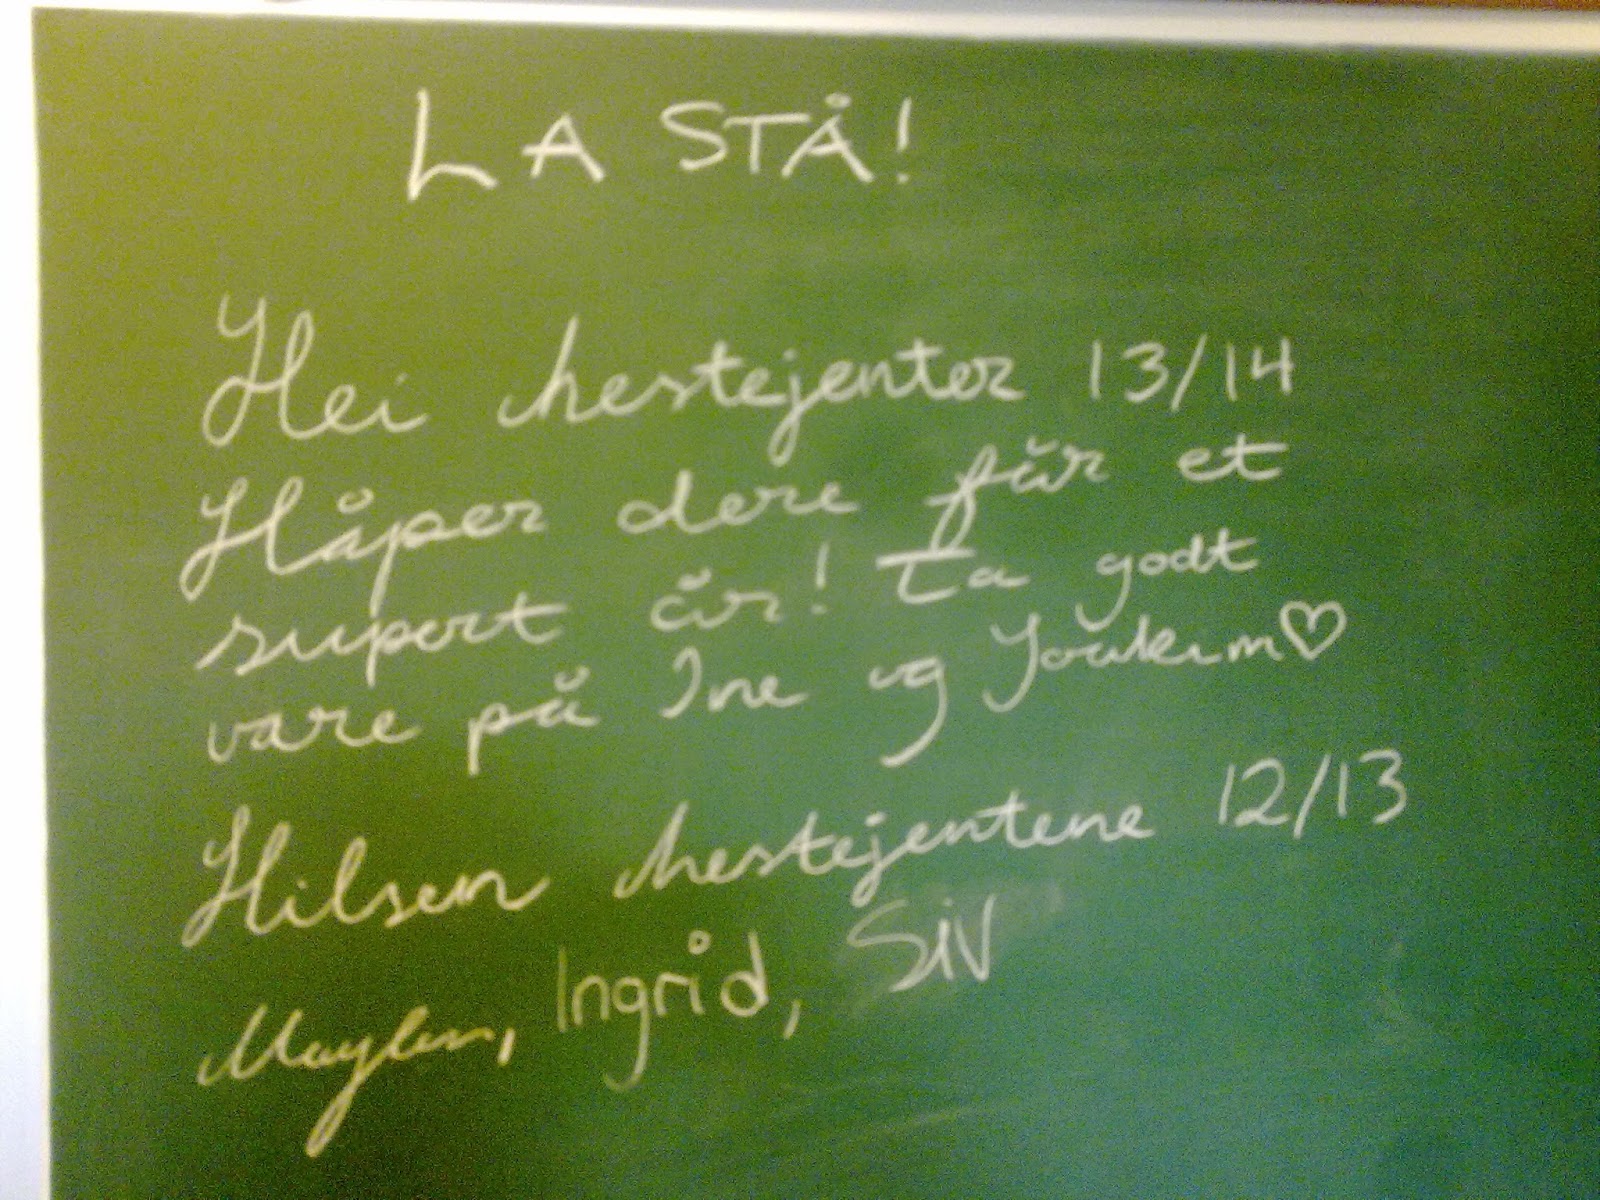 LA STÅ!
Hei hestejenter 13/14
Håper dere får et
supert år! Ta godt
vare på Ine og Joakim♡
Hilsen hestejentene 12/13
Maylen, Ingrid, SiV